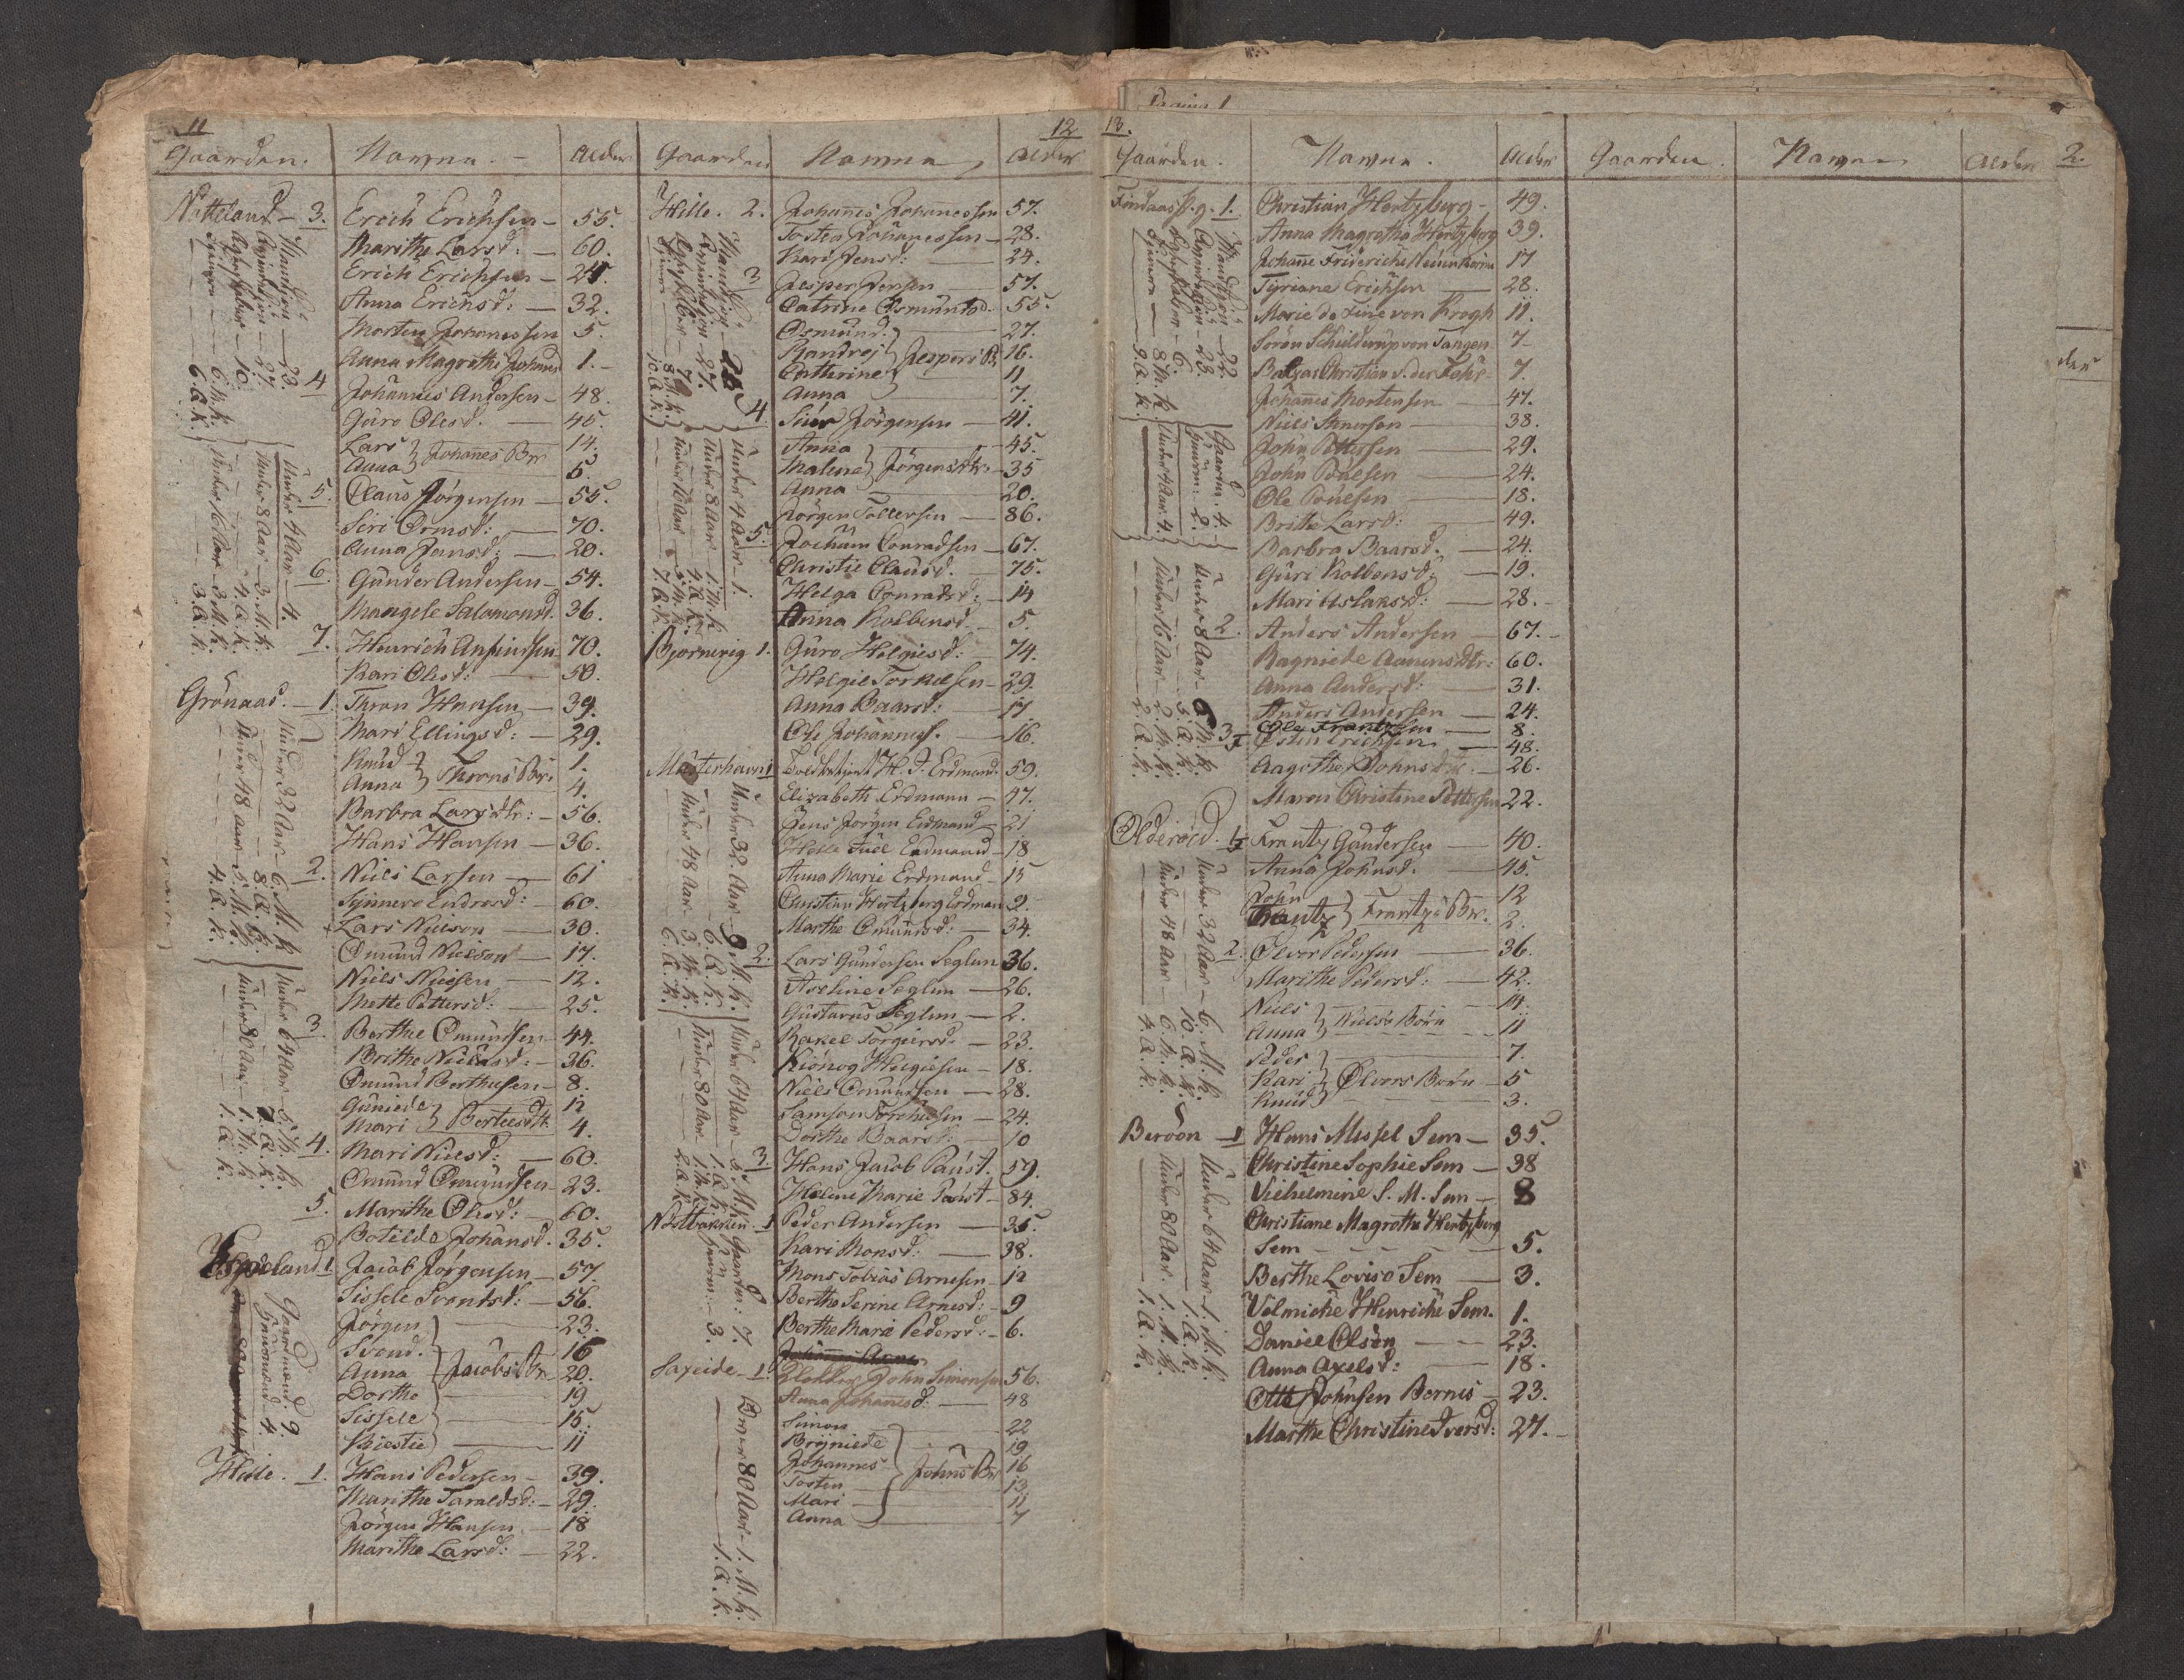 11
Gaarden. Navne. Alder
Notteland 3. Erich Erichsen 55.
Marithe Larsd: 60.
Erich Erichsen 24.
Anna Erichsd: 32.
Morten Johanessen 5.
Anna Magrethe Johans 1.
4 Johannes Andersen 48.
Guro Olesd. 45.
Lars } Johannes Br 14.
Anna 5.
5. Claus Jørgensen 55.
Siri Ormsd: 70.
Anna Jansd: 20.
6. Gunder Andersen 54.
Mangele Salomonsd. 36.
7. Henrich 70.
Kari Olsd: 50.
Grønaas. 1. Thron Hansen 39.
Mari Ellingsd: 29.
Knud } Throns Br: 1.
Anna 4.
Barbra Larsdtr: 56.
Hans Hansen 36.
2. Niels Larsen 61
Synneve Endresd: 60.
Lars Nielson 30.
Omund Nielson 17.
Niels Nielsen 12.
Mette Pettersd. 25.
3. Berthel Omundsen 44.
Brithe Nielsd: 36.
Omund Berthelsen 8.
Guniede } Bertels Dtr 12
Mari 4.
4. Mari Nielsd: 60.
Omund Omundsen 23.
5. Marithe Olesd: 60.
Botilde Johansd. 35.
Espeland 1 Jacob Jørgensen 57.
Sissele Svendsd: 56.
Jørgen 23.
Svend. 16
Anna } Jacobs Br 20.
Dorthe 19
Sissele 15.
Kiestie 11
Hille. 1. Hans Pedersen 39.
Marithe Taraldsd: 29.
Jørgen Hansen 18
Marithe Larsd: 22.
Mandkjøn 23.
Qvindekjøn 27.
Ægtefolker 10.
6. M. k.
6. Q. k.
Under 4 Aar 4.
Under 8 Aar 3. M. k.
4. Q. k.
Under 16 Aar 3 M. k.
3. Q. k.
Under 32 Aar 6. M. k
8. Q. k.
Under 48 aar 5. M. k.
4. Q. k.
Under 64 Aar 5. M. k.
7. Q. k.
Under 80 Aar 1. M. k.
1. Q. k.
Gaardmænd. 9.
Huusmænd 4.
12
Gaarden Navne Alder
Hille. 2. Johanes Johanessen 57.
Tosten Johanessen 28.
Kari Jensd: 24.
3 Jesper Jersen 57.
Catrine Osmundsd. 55.
Osmund. 27.
Randvei } Jespers Br 16.
Catherine 11
Anna 7.
4. Siur Jørgensen 41.
Anna 45.
Malene } Jørgens dtr 35
Anna 20.
Jørgen Tollersen 86.
5. Jochum Conradsen 67.
Christie Clausd. 75.
Helga Conradsd: 14
Anna Kolbensd. 5.
Bjørnevig 1. Guro Helgiesd: 74.
Helgie Torkelsen 29.
Anna Baarsd: 17
Ole Johannes. 16.
Mosterhavn 1 H. J. Erdmand. 59.
Elizabeth Erdmann 47.
Jens Jørgen Erdmand 21
Helle Juel Erdmand 18
Anna Marie Erdmand 15
Christian Hertzberg Erdman 9.
Marthe Omundsd: 34.
2. Lars Gundersen Seglem 36.
Aorline Seglem 26.
Gustavus Seglem 2.
Rakel Torgiersd. 23.
Helgiesen 18.
Niels Omundsen 28.
Samson 24.
Dorthe Baarsd: 10
3. Hans Jacob Paust. 59.
Helene Marie Paust 84.
Nøstbakken 1 Peder Andersen 35.
Kari Monsd: 38.
Mons Tobias Arnesen 12
Berthe Serine Arnesd: 9
Berthe Marie Pedersd: 6.
Saxeide 1. Klokker John Simonsen 56.
Anna Johannesd: 48
Simon 22
Brynilde 19
Johannes } Johns Br 16
Tosten 13
Mari 11
Anna 7
Mandkjøn
Qvindekjøn 27.
Under 4 Aar 1.
Under 8 Aar 1. M. k
4. Q. k.
Under 16 Aar 5 M. k.
7. Q. k.
Under 32. Aar 9 M. k.
6. Q. k.
Under 48 Aar 3 M. k.
6. Q. k.
Under 64 Aar 5 M. k
1. Q. k.
Under 80 Aar 1. M. k.
2. Q. k.
Gaarden: 7.
Huuren: 3.
Over 80 Aar 1. M. k.
1. Q. k.
13.
Gaarden. Navne. Alder Gaarden. Navne Alder 2.
Findaas P. g. 1. Christian Hertzberg 49.
Anna Magretha Hertzberg 39.
Johane Friderich 17
Tyriane Erichsen 28.
Marie de Fine von Krogh 11.
Søren Schuldrup von Tangen 7
Balzar Christian v. der Fehr 7.
Johannes Mortensen 47.
Niels Amerson 38.
John Pettersen 29.
John Poulsen 24.
Ole Poulsen 18.
Brithe Larsd: 49.
Barbra Baarsd. 24.
Guri Kolbensd: 19.
Mari Aslaksd: 28.
2. Anders Andersen 67.
Ragniele Aamunds dtr: 60.
Anna Andersd: 31.
Anders Andersen 24.
Ole Frantzen 8.
3 Osten Erichsen 48.
Aagothe Johnsdtr. 26.
Maren Christine Pettersen 22.
Olderøed. 1 Frantz Gundersen 40.
Anna Johnsd. 45.
John } Frantz's Br. 12
Frantz 2.
2. Elver Pedersen 36.
Marithe Pedersd: 42.
Niels } Niels's Børn 14.
Anna 11
Peder 7.
Kari } Elvers Børn 5
Knud 3.
Berøen 1 Hans Missel Sem 35.
Christine Sophie Sem 38
Vielhelmine S. M. Sem 8
Christiane Magrethe Hertzberg
Sem 5.
Berthe Lovise Sem 3.
Velmiche Henriche Sem. 1.
Daniel Olsen 23.
Anna Axelsd: 18.
Otte Johnsen Bernes 23.
Marthe Christine Iversd: 27.
Mandkjøn 22.
Qvindekjøn 23
Ægtefolker 6.
8 M. k.
9. Q. k.
Gaarden 4.
Huuren 2.
Under 4 Aar 4.
Under 8 Aar 6 M. k.
5. Q. k.
Under 16 Aar 2. M. k.
2. Q. k.
Under 32 Aar 6. M. k.
10. Q. k.
Under 48 Aar 6. M. k.
4. Q. k.
Under 64 Aar 1. M. k.
1. Q. k.
Under 80 Aar. 1. M. k.
1. Q. k.